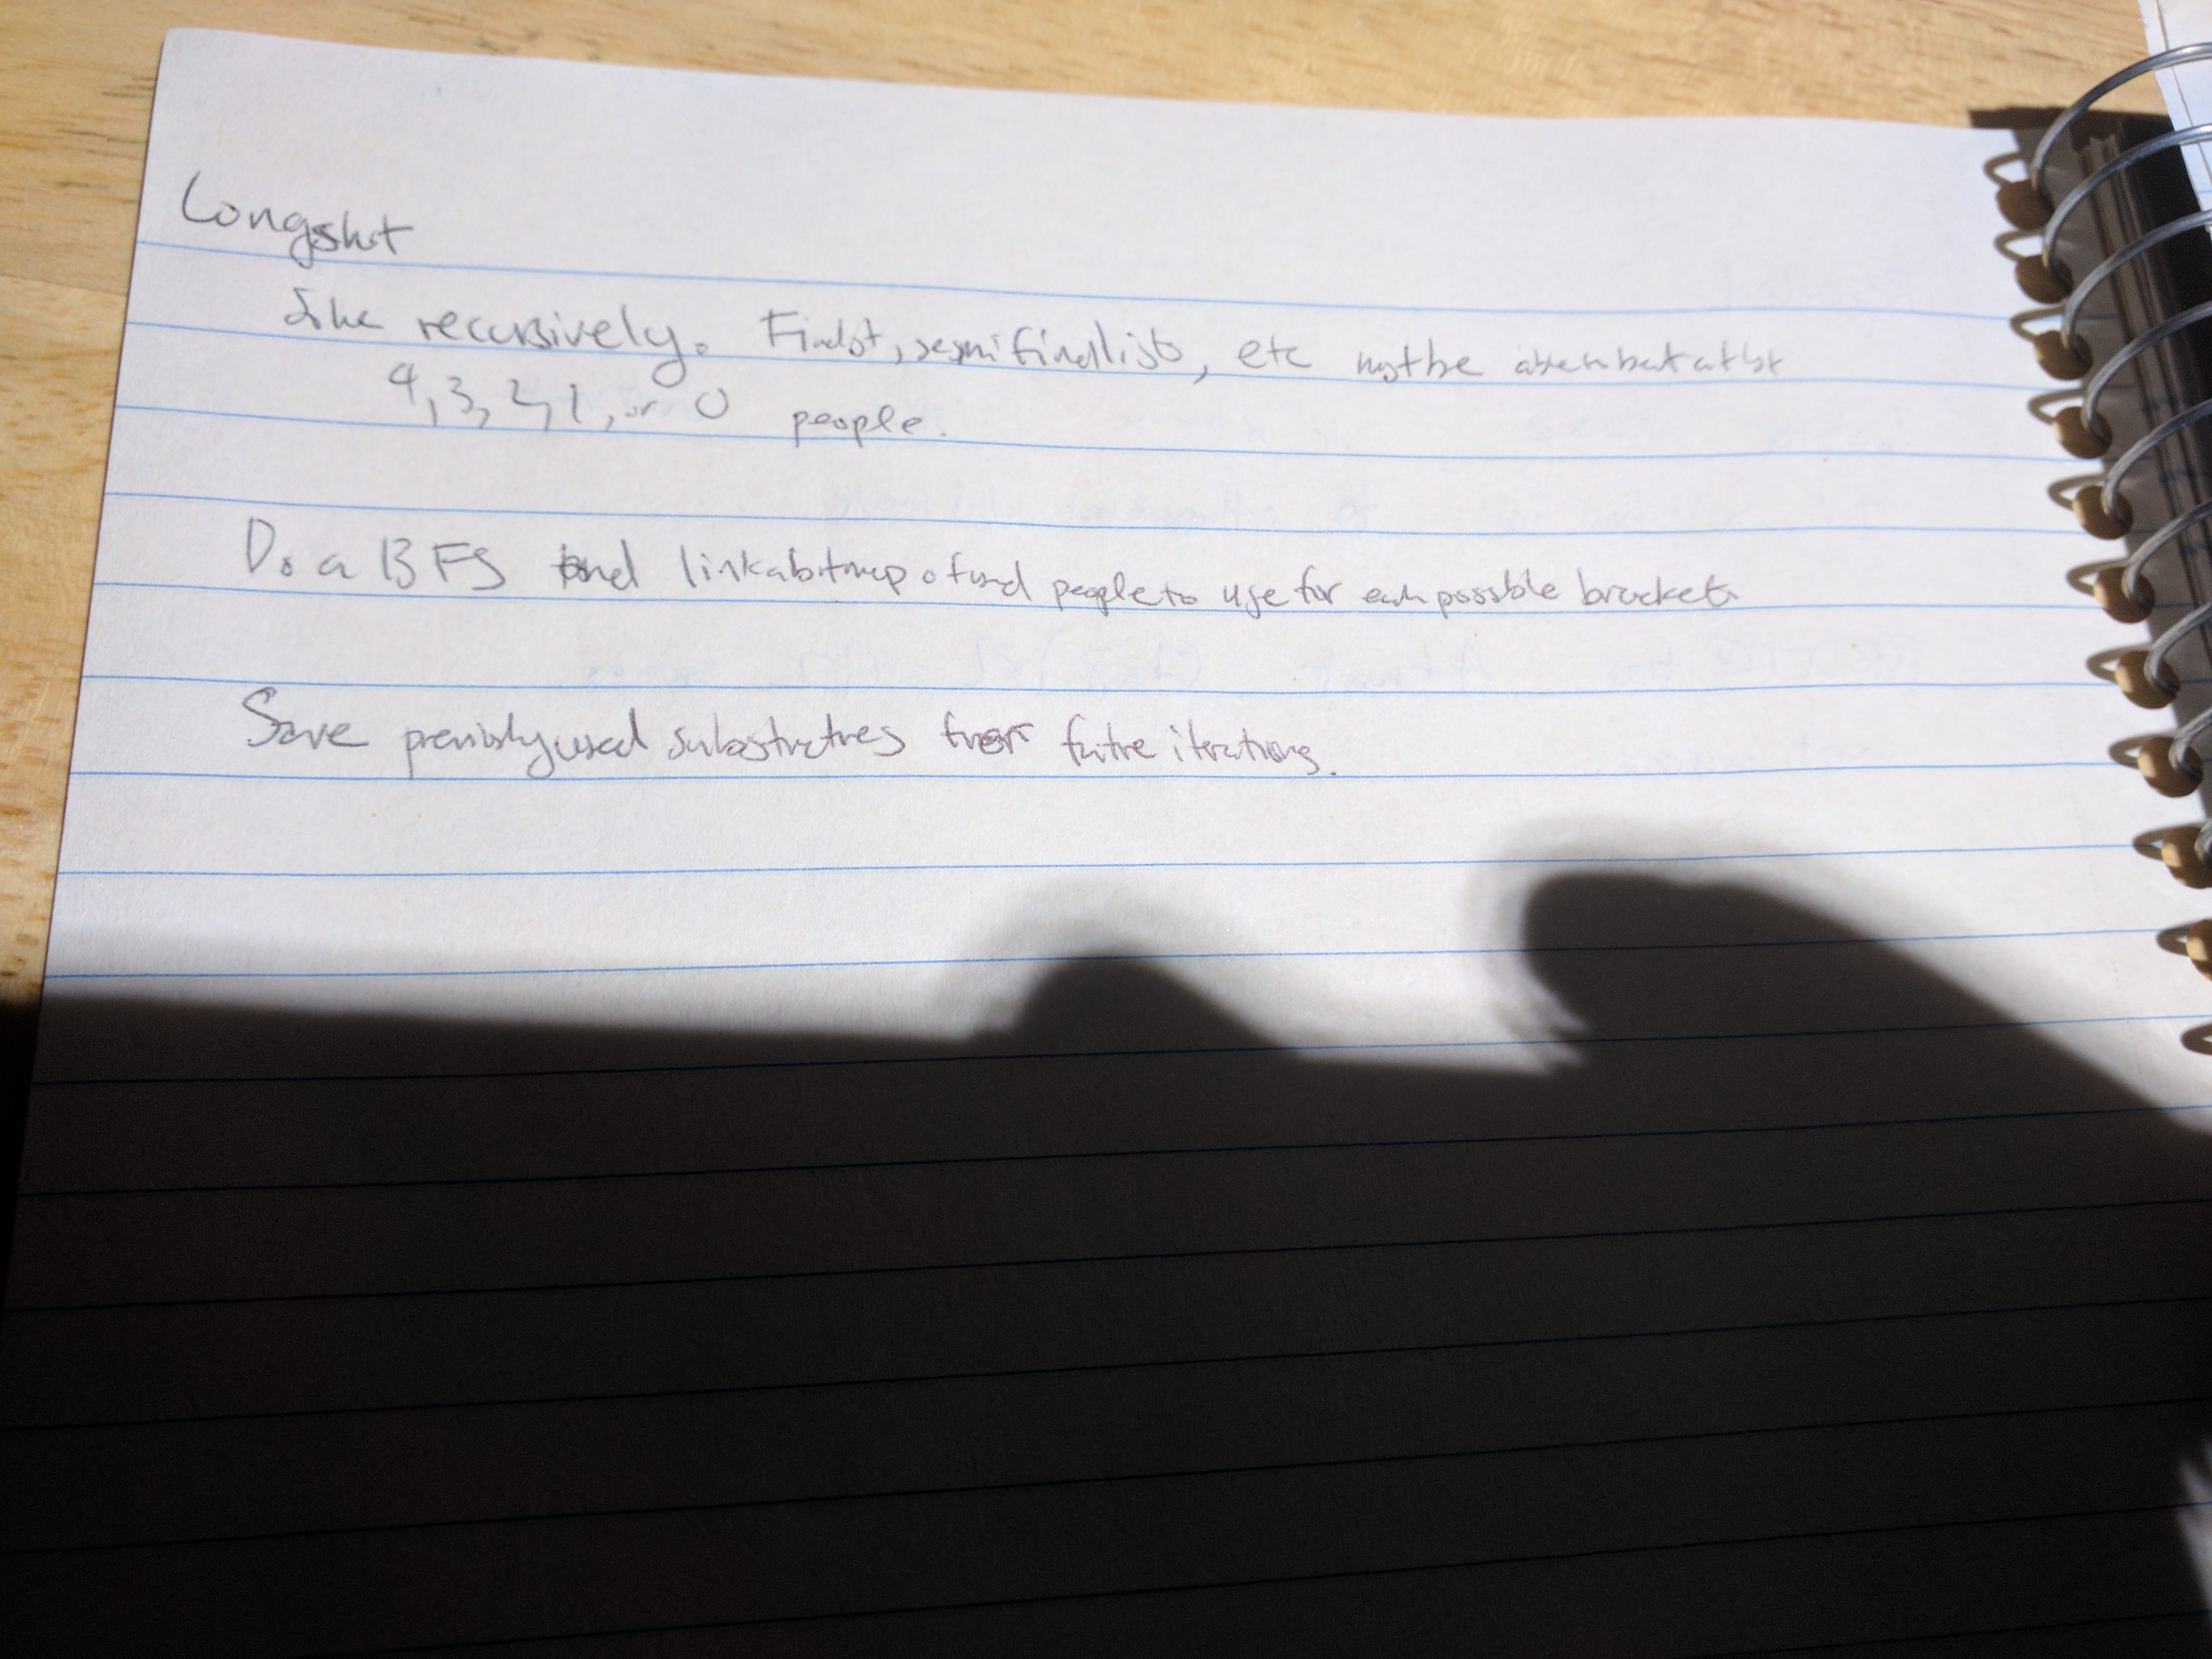 Longshot
Solve recursively. Finalist, semifinalists, etc must be able to beat at least
4, 3, 2, 1, or 0 people.
Do a BFS and link a bitmap of used people to use for each possible bracket.
Save previously used substructures for future iterations.